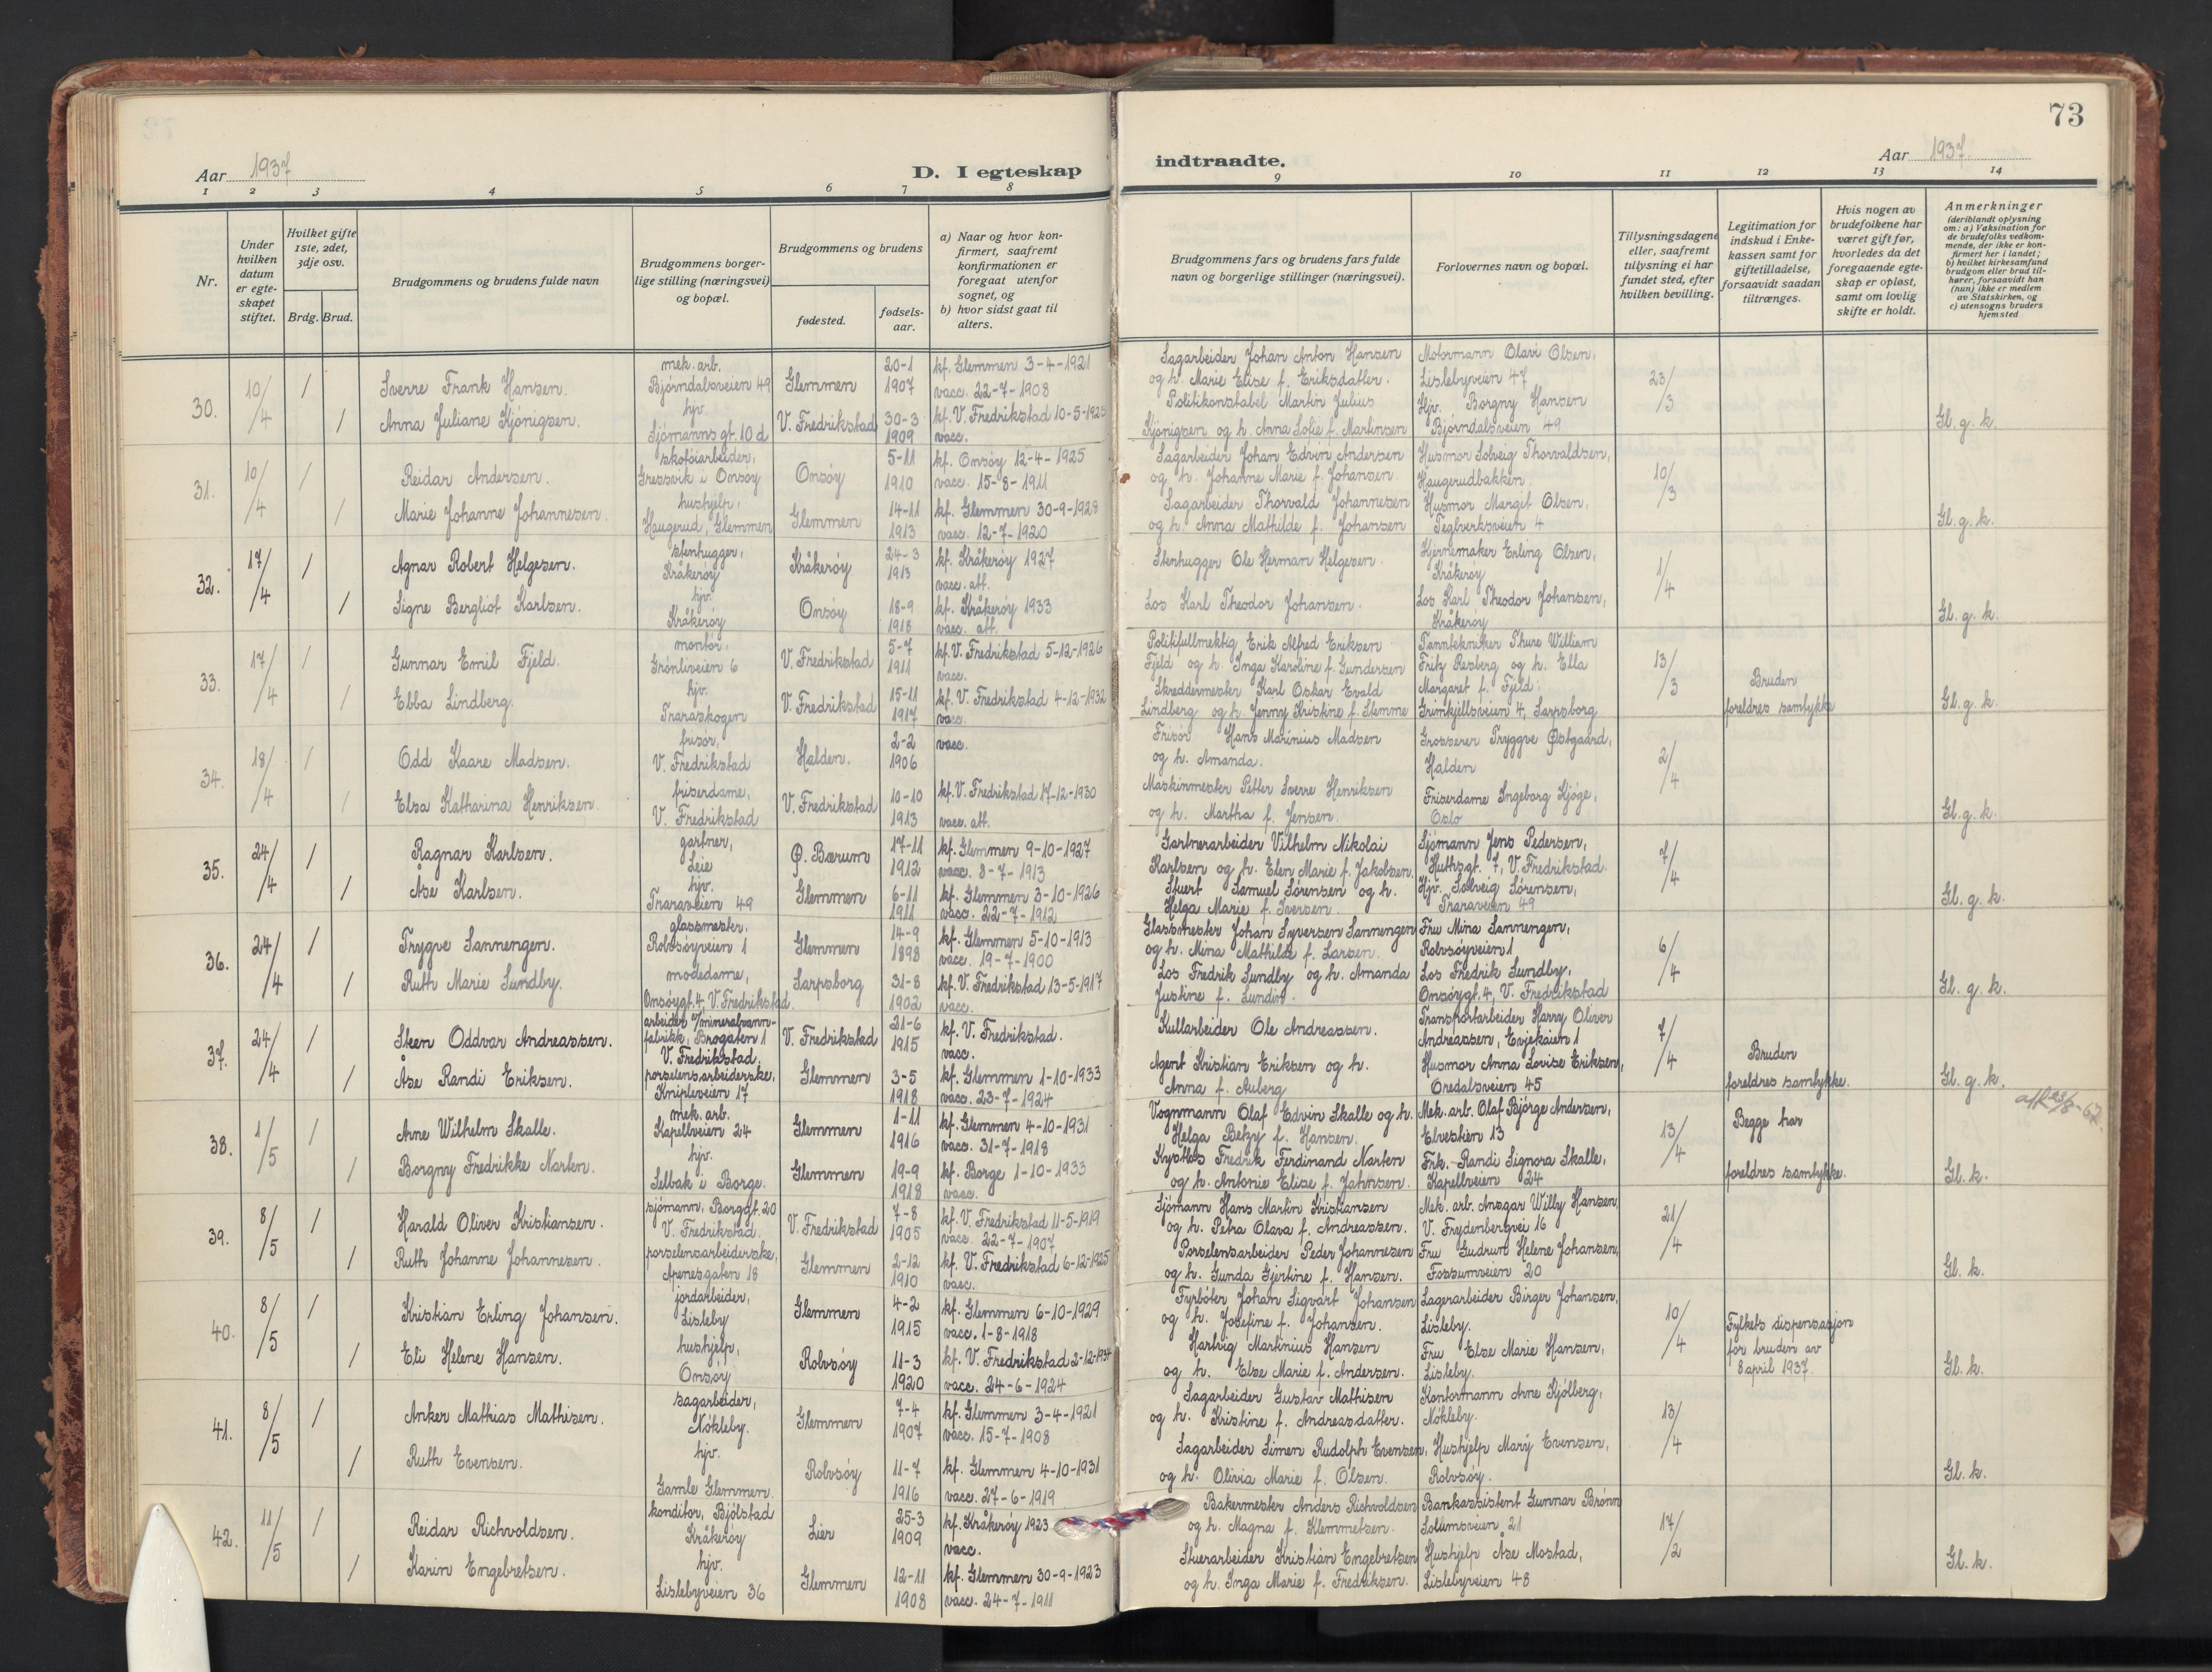 73
Aar 1937
D. I egteskap
indtraadte.
Aar 1937.
1 2 3 4 5 6 7 8 9 10 11 12 13 14
Nr.
Under hvilken datum er egteskapet stiftet.
Hvilket gifte 1ste, 2det, 3dje osv.
Brdg. Brud.
Brudgommens og brudens fulde navn
Brudgommens borgerlige stilling (næringsvei) og bopæl.
Brudgommens og brudens
fødested.
fødselsaar.
a) Naar og hvor konfirmert, saafremt konfirmationen er foregaat utenfor sognet, og
b) hvor sidst gaat til alters.
Brudgommens fars og brudens fars fulde navn og borgerlige stillinger (næringsvei).
Forlovernes navn og bopæl.
Tillysningsdagene eller, saafremt tillysning ei har fundet sted, efter hvilken bevilling.
Legitimation for indskud i Enkekassen samt for giftetilladelse, forsaavidt saadan tiltrænges.
Hvis nogen av brudefolkene har været gift før, hvorledes da det foregaaende egteskap er opløst, samt om lovlig skifte er holdt.
Anmerkninger
(deriblandt oplysning om: a) Vaksination for de brudefolks vedkommende, der ikke er konfirmert her i landet;
b) hvilket kirkesamfund brudgom eller brud tilhører, forsaavidt han (hun) ikke er medlem av Statskirken, og
c) utensogns bruders hjemsted
30. 10/4 / Sverre Frank Hansen. mek. arb. Bjørndalsveien 49 Glemmen 20-1 1907 kf. Glemmen 3-4-1921 vacc. 22-7-1908 Sagarbeider Johan Anton Hansen og h. Marie Elise f. Eriksdatter. Motormann Olavi Olsen, Lislebyveien 47 23/3
/ Anna Juliane Kjönigsen. hjv. Sjömanns gt. 10 d V. Fredrikstad 30-3 1909 kf. V. Fredrikstad 10-5-1923 vacc. Politikonstabel Martin Julius Kjönigsen og h. Anna Sofie f. Martinsen Hjv. Borgny Hansen Bjørndalsveien 49 Gl. g. k.
31. 10/4 / Reidar Andersen. skotøiarbeider, Gressvik i Onsøy Onsøy 5-11 1910 kf. Onsøy 12-4-1925 vacc. 15-8-1911 Sagarbeider Johan Edvin Andersen og h. Johanne Marie f. Johansen. Husmor Solveig Thorvaldsen, Haugerudbakken 10/3
/ Marie Johanne Johannesen. hushjelp, Haugerud, Glemmen Glemmen 14-11 1913 kf. Glemmen 30-9-1928 vacc. 12-7-1920 Sagarbeider Thorvald Johannesen og h. Anna Mathilde f. Johansen Husmor Margit Olsen, Teglverksveien 4 Gl. g. k.
32. 17/4 / Agnar Robert Helgesen. stenhugger, Kråkerøy Kråkerøy 24-3 1913 kf. Kråkerøy 1927 vacc. att. Stenhugger Ole Herman Helgesen. Kjernemaker Erling Olsen, Kråkerøy 1/4
/ Signe Bergliot Karlsen. hjv. Kråkerøy Onsøy 18-9 1918 kf. Kråkerøy 1933 vacc. att. Los Karl Theodor Johansen. Los Karl Theodor Johansen, Kråkerøy Gl. g. k.
33. 17/4 / Gunnar Emil Fjeld. montør, Grönliveien 6 V. Fredrikstad 5-7 1911 kf. V. Fredrikstad 5-12-1926 vacc. Politifullmektig Erik Alfred Eriksen Fjeld og h. Inga Karoline f. Gundersen Tanntekniker Thure William Fritz Resberg og h. Ella Margaret f. Fjeld 13/3
/ Ebba Lindberg. hjv. Traraskogen V. Fredrikstad 15-11 1917 kf. V. Fredrikstad 4-12-1932 vacc. Skreddermester Karl Oskar Evald Lindberg og h. Jenny Kristine f. Slemme Grimkjellsveien 4, Sarpsborg Bruden foreldres samtykke Gl. g. k.
34. 18/4 / Odd Kaare Madsen. frisør, V. Fredrikstad Halden. 2-2 1906 vacc. Frisør Hans Marinius Madsen og h. Amanda. Grosserer Tryggve Østgaard, Halden 2/4
/ Elsa Katharina Henriksen. friserdame, V. Fredrikstad V. Fredrikstad 10-10 1913 kf. V. Fredrikstad 17-12-1930 vacc. att. Maskinmester Petter Sverre Henriksen og h. Martha f. Jensen. Friserdame Ingeborg Kjøge, Oslo Gl. g. k.
35. 24/4 / Ragnar Karlsen. gartner, Leie Ø. Bærum 17-11 1912 kf. Glemmen 9-10-1927 vacc. 8-7-1913 Gartnerarbeider Vilhelm Nikolai Karlsen og h. Elen Marie f. Jakobsen. Sjømann Jens Pedersen, Huthsgt. 7, V. Fredrikstad. 7/4
/ Åse Karlsen. hjv. Traraveien 49 Glemmen 6-11 1911 kf. Glemmen 3-10-1926 vacc. 22-7-1912 Stuert Samuel Sørensen og h. Helga Marie f. Iversen. Hjv. Solveig Sørensen, Traraveien 49 Gl. g. k.
36. 24/4 / Trygve Sannengen. glassmester, Rolvsøyveien 1 Glemmen 14-9 1898 kf. Glemmen 5-10-1913 vacc. 19-7-1900 Glassmester Johan Syversen Sannengen og h. Mina Mathilde f. Larsen. Fru Mina Sannengen, Rolvsøyveien 1 6/4
/ Ruth Marie Sundby. modedame, Onsøygt. 4, V. Fredrikstad. Sarpsborg 31-8 1902 kf. V. Fredrikstad 13-5-1917 vacc. Los Fredrik Sundby og h. Amanda Justine f. Lundin. Los Fredrik Sundby, Onsøygt. 4, V. Fredrikstad Gl. g. k.
37. 24/4 / Steen Oddvar Andreassen. arbeider v/mineralvannfabrikk, Brogaten 1 V. Fredrikstad. V. Fredrikstad 21-6 1915 kf. V. Fredrikstad. vacc. Kullarbeider Ole Andreassen. Transportarbeider Harry Oliver Andreassen, Evjekaien 1 7/4
/ Åse Randi Eriksen. porselensarbeiderske, Knipleveien 17 Glemmen 3-5 1918 kf. Glemmen 1-10-1933 vacc. 23-7-1924 Agent Kristian Eriksen og h. Anna f. Auberg Husmor Anna Lovise Eriksen, Oredalsveien 45 Bruden foreldres samtykke. Gl. g. k.
38. 1/5 / Arne Wilhelm Skalle. mek. arb. Kapellveien 24 Glemmen 1-11 1916 kf. Glemmen 4-10-1931 vacc. 31-7-1918 Vognmann Olaf Edvin Skalle og h. Helga Betzy f. Hansen. Mek. arb. Olaf Bjørge Andersen, Elvestien 13 13/4 Begge har
/ Borgny Fredrikke Narten. hjv. Selbak i Borge. Glemmen 19-9 1918 kf. Borge 1-10-1933 vacc. Kystlos Fredrik Ferdinand Narten og h. Antonie Elise f. Jahnsen. Frk. Randi Signora Skalle, Kapellveien 24 foreldres samtykke. Gl. k.
39. 8/5 / Harald Oliver Kristiansen. sjømann, Borggt. 20 V. Fredrikstad. V. Fredrikstad 7-8 1905 kf. V. Fredrikstad 11-5-1919 vacc. 22-7-1907 Sjømann Hans Martin Kristiansen og h. Petra Olava f. Andreassen. Mek. arb. Ansgar Willy Hansen, V. Frydenbergvei 16 21/4
/ Ruth Johanne Johannesen. porselensarbeiderske, Apenesgaten 18 Glemmen 2-12 1910 kf. V. Fredrikstad 6-12-1925 vacc. Porselensarbeider Peder Johannesen og h. Gunda Gjertine f. Hansen. Fru Gudrun Helene Johansen, Fossumveien 20 Gl. k.
40. 8/5 / Kristian Erling Johansen. jordarbeider, Lisleby Glemmen 4-2 1915 kf. Glemmen 6-10-1929 vacc. 1-8-1918 Fyrbøter Johan Sigvart Johansen og h. Josefine f. Johansen. Lagerarbeider Birger Johansen, Lisleby. 10/4
/ Eli Helene Hansen. hushjelp, Onsøy Rolvsøy 11-3 1920 kf. V. Fredrikstad 2-12-1934 vacc. 24-6-1924 Hartvig Martinius Hansen og h. Else Marie f. Andersen. Fru Else Marie Hansen, Lisleby. Fylkets dispensasjon for bruden av 8 april 1937. Gl. k.
41. 8/5 / Anker Mathias Mathisen. sagarbeider, Nøkleby. Glemmen 7-4 1907 kf. Glemmen 3-4-1921 vacc. 15-7-1908 Sagarbeider Gustav Mathisen og h. Kristine f. Andreasdatter. Kontormann Arne Kjölberg, Nøkleby. 13/4
/ Ruth Evensen. hjv. Gamle Glemmen. Rolvsøy 11-7 1916 kf. Glemmen 4-10-1931 vacc. 27-6-1919 Sagarbeider Simen Rudolph Evensen, og h. Olivia Marie f. Olsen. Hushjelp Mary Evensen, Rolvsøy. Gl. k.
42. 11/5 / Reidar Richvoldsen. konditor, Bjölstad Kråkerøy Lier 25-3 1909 kf. Kråkerøy 1923 vacc. Bakermester Anders Richvoldsen og h. Magna f. Klemmetsen. Bankassistent Gunnar Brönn Solumsveien 21 17/2
/ Karin Engebretsen. hjv. Lislebyveien 36 Glemmen 12-11 1908 kf. Glemmen 30-9-1923 vacc. 24-7-1911 Stuerarbeider Kristian Engebretsen og h. Inga Marie f. Fredriksen. Hushjelp Åse Mostad, Lislebyveien 48 Gl. k.